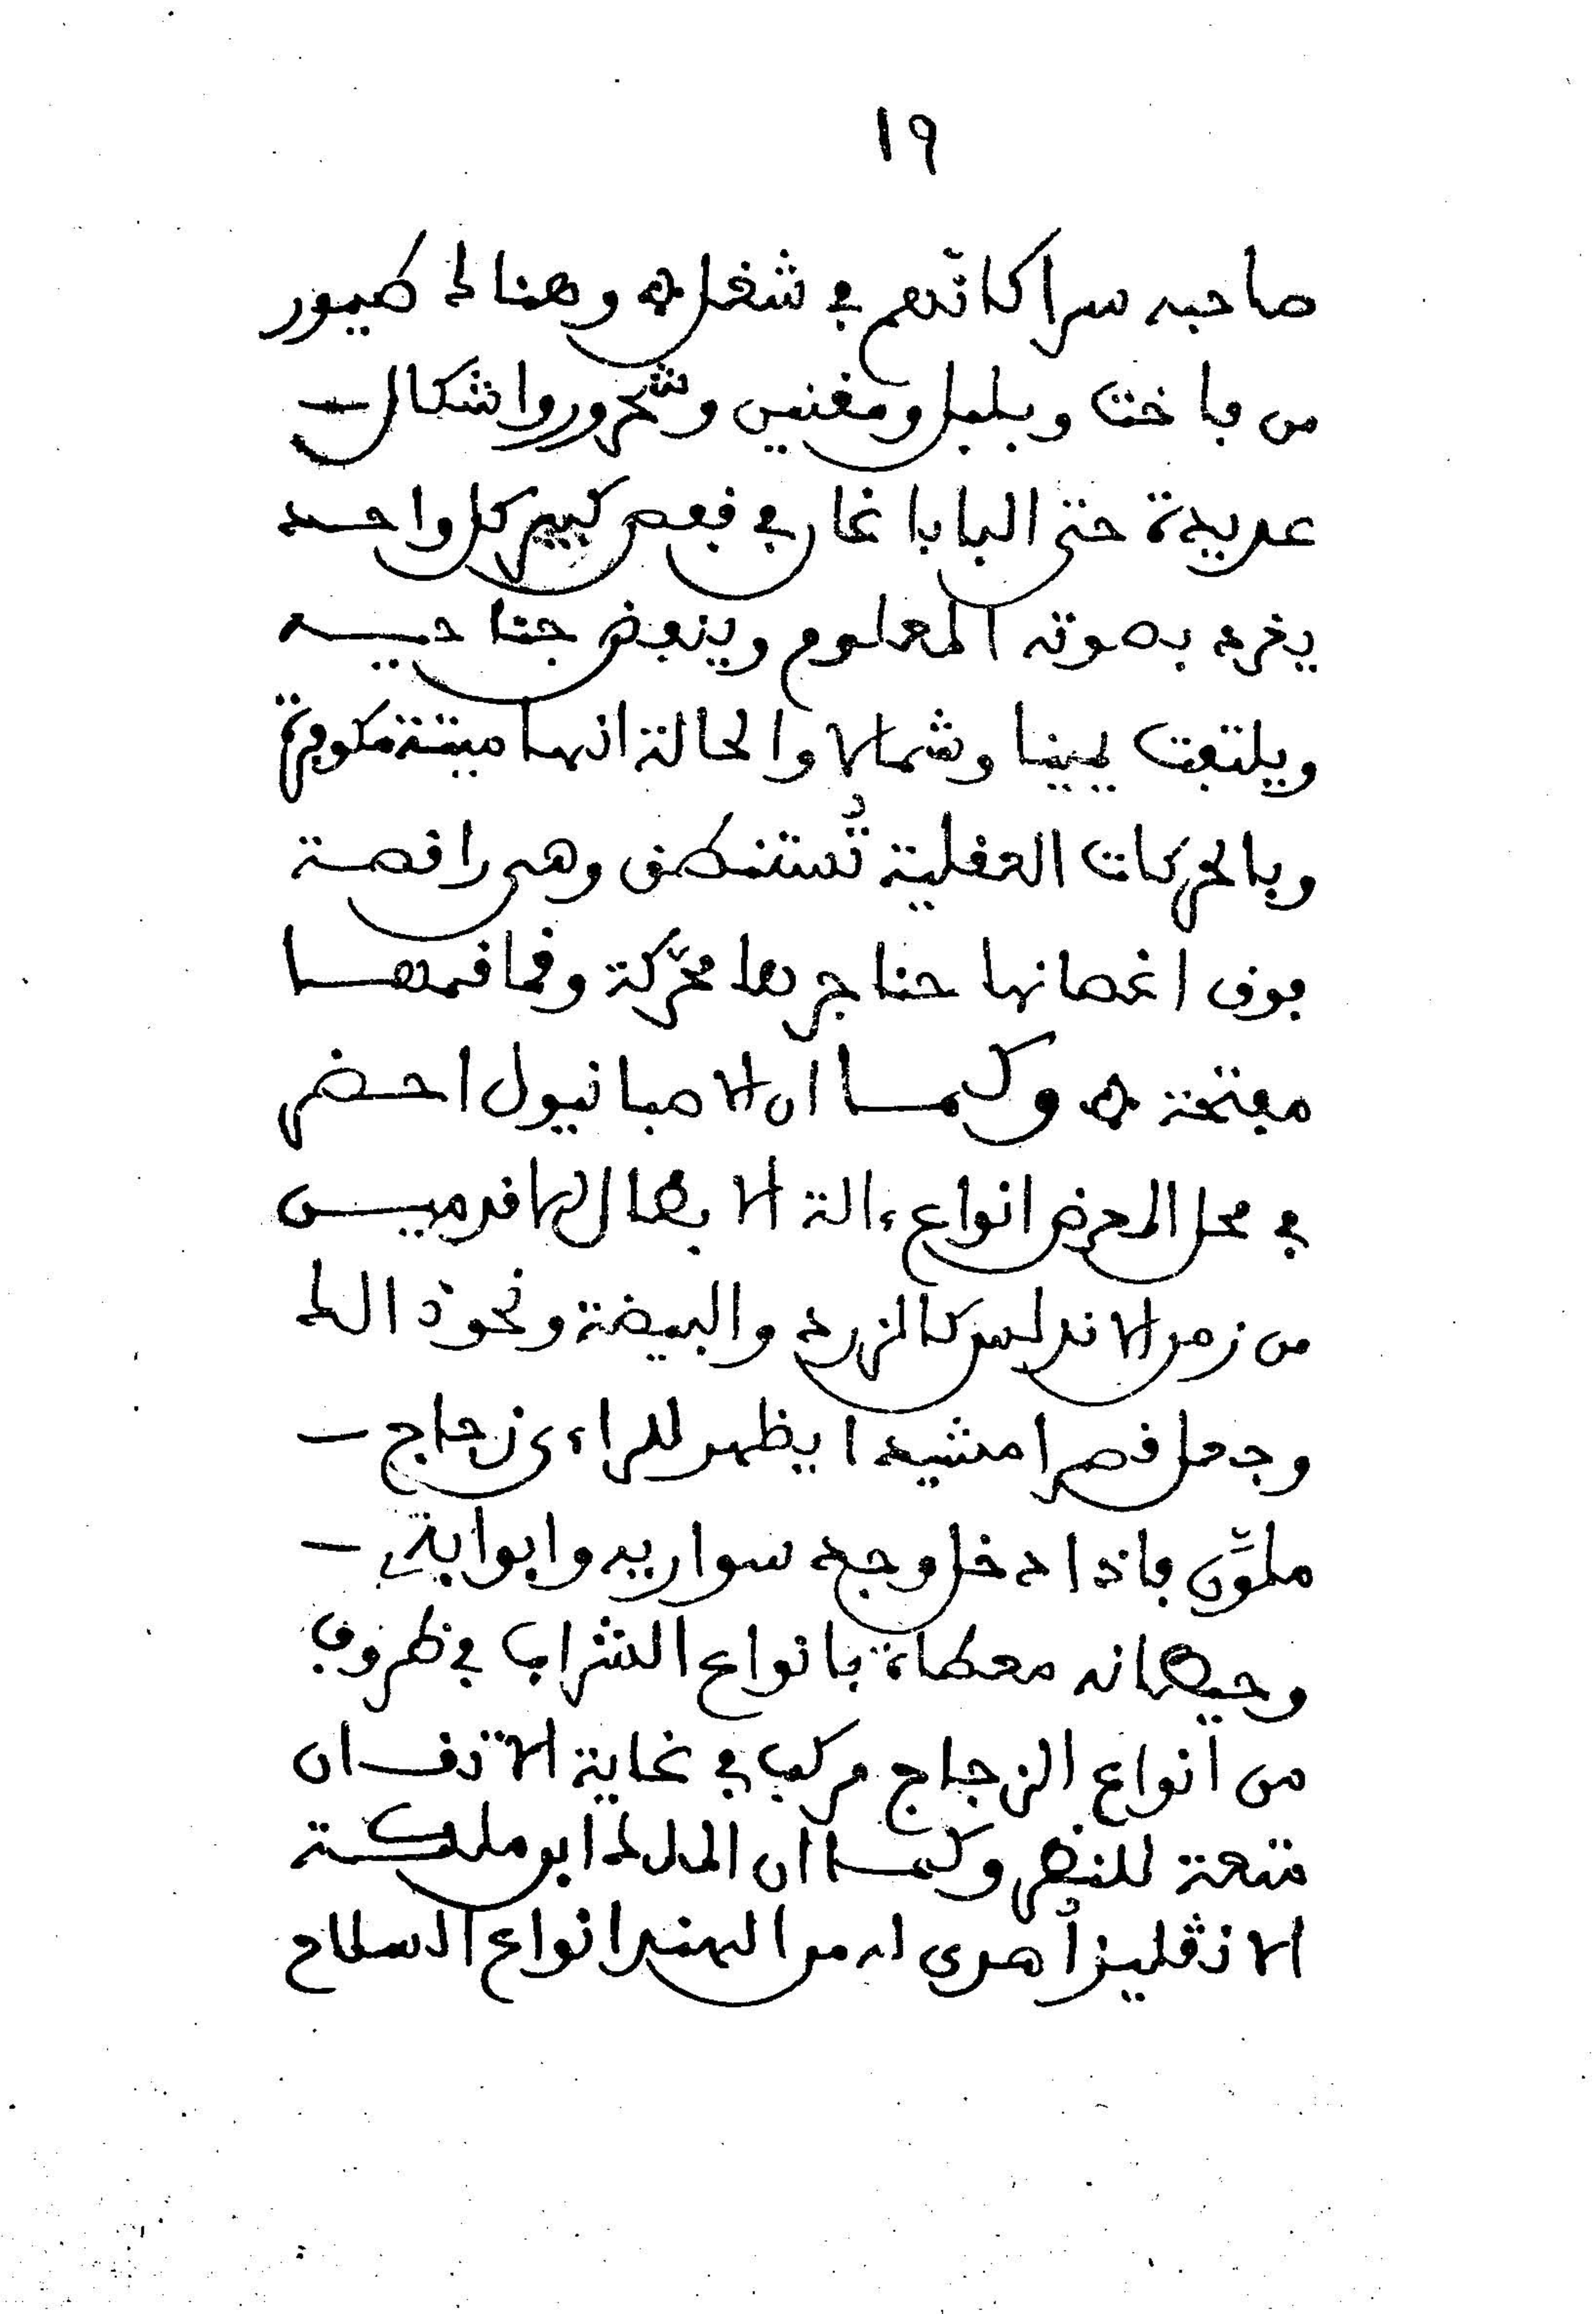 ١٩
صاحبه سرا كانّهم في شغل ۞ وهنالك طيور
من فاخت وبلبل ومغنين وشحرور واشكال
عديدة حتى البابا غاى في قفص كبير كل واحد
يغرد بصوته المعلوم وينفض جناحيه
ويلتفت يمينا وشمالا والحالة انها ميتة مكوفرة
وبالحركات العقلية تُستنطق وهى راقصة
فوق اغصانها حناجرها محرّكة وفماقمها
مفتحة ۞ وكيما ان الاصبانيول احضر
في محل المعرض انواع ءالة الابطال لها قد ميس
من زمن الاندلس كالزرد والبيضة ونحوذالك
وجعل قصرا مشيدا يظهر للراءى زجاج
ملوّن فاذا دخل وجد سواريه وابوابه
وحيطانه مغطاة بانواع الشراب في ظروف
من انواع الزجاج مركب في غاية الاتقان
متعة للنظر وكيما ان الملك ابو ملكة
الانڤليز أهدى له من الهند انواع السلاح